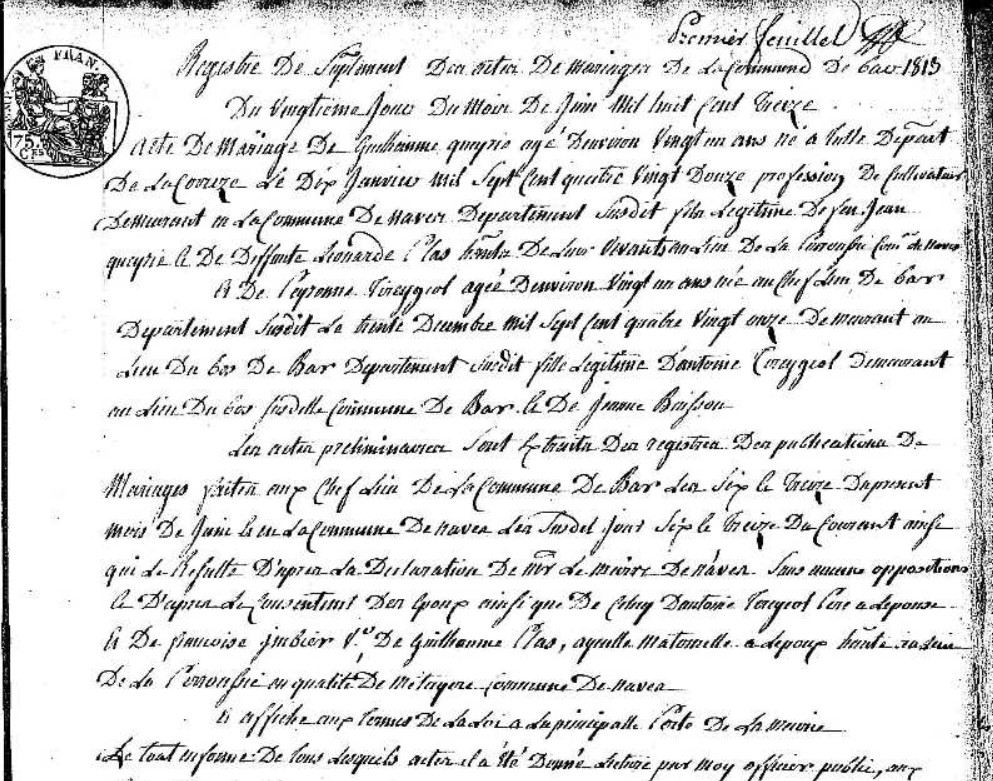 Premier feuillet
Registre De Suplement Des actes De mariages De La Commune De bar 1813
Du Vingtieme Jour Du Mois De Juin Mil huit Cent Treize
FRAN.
75.
Ces
acte De Mariage De Guilhaume queyrie agé Denviron Vingt un ans né a tulle Départ
De La Correze Le Dix Janvier Mil Sept Cent quatre Vingt Douze profession De Cultivateur
Demeurant en La Commune De naves Departement Susdit fils Legitime De feu Jean
queyrie & De Deffunte Leonarde Plas De Leur Vivants au Lieu De La
& De Peyronne agée Denviron Vingt un ans née au Chef Lieu De bar
Departement Susdit Le trente Decembre Mil Sept Cent quatre Vingt onze Demeurant au
Lieu Du bos De Bar Departement Susdit fille Legitime D'antoine Demeurant
au Lieu Du bos Susdtte Commune De Bar & De Jeanne Buisson
Les actes preliminaires Sont Extraits Des registres Des publications De
Mariages faites aux Chef Lieu De La Commune De Bar Les Six & Treize Du present
mois De Juin & en La Commune De naves Les Jour Six & Treize Du Courant ainsi
qui Le Resulte D'apres La Declaration De Mr Le maire De naves Sans aucune opposition
& D'apres Le Consentement Des Epoux ainsi que De Celuy D'antoine Pere a Lepouse
& De francoise Ve De Guilhaume Plas, ayeulle Maternelle a Lepoux
De La en qualité De metayere Commune De naves
& affiche aux termes De La Loi a La principalle Porte De La mairie
Le tout en forme De tous Lesquels actes il a été Donné Lecture par moy officier public, aux